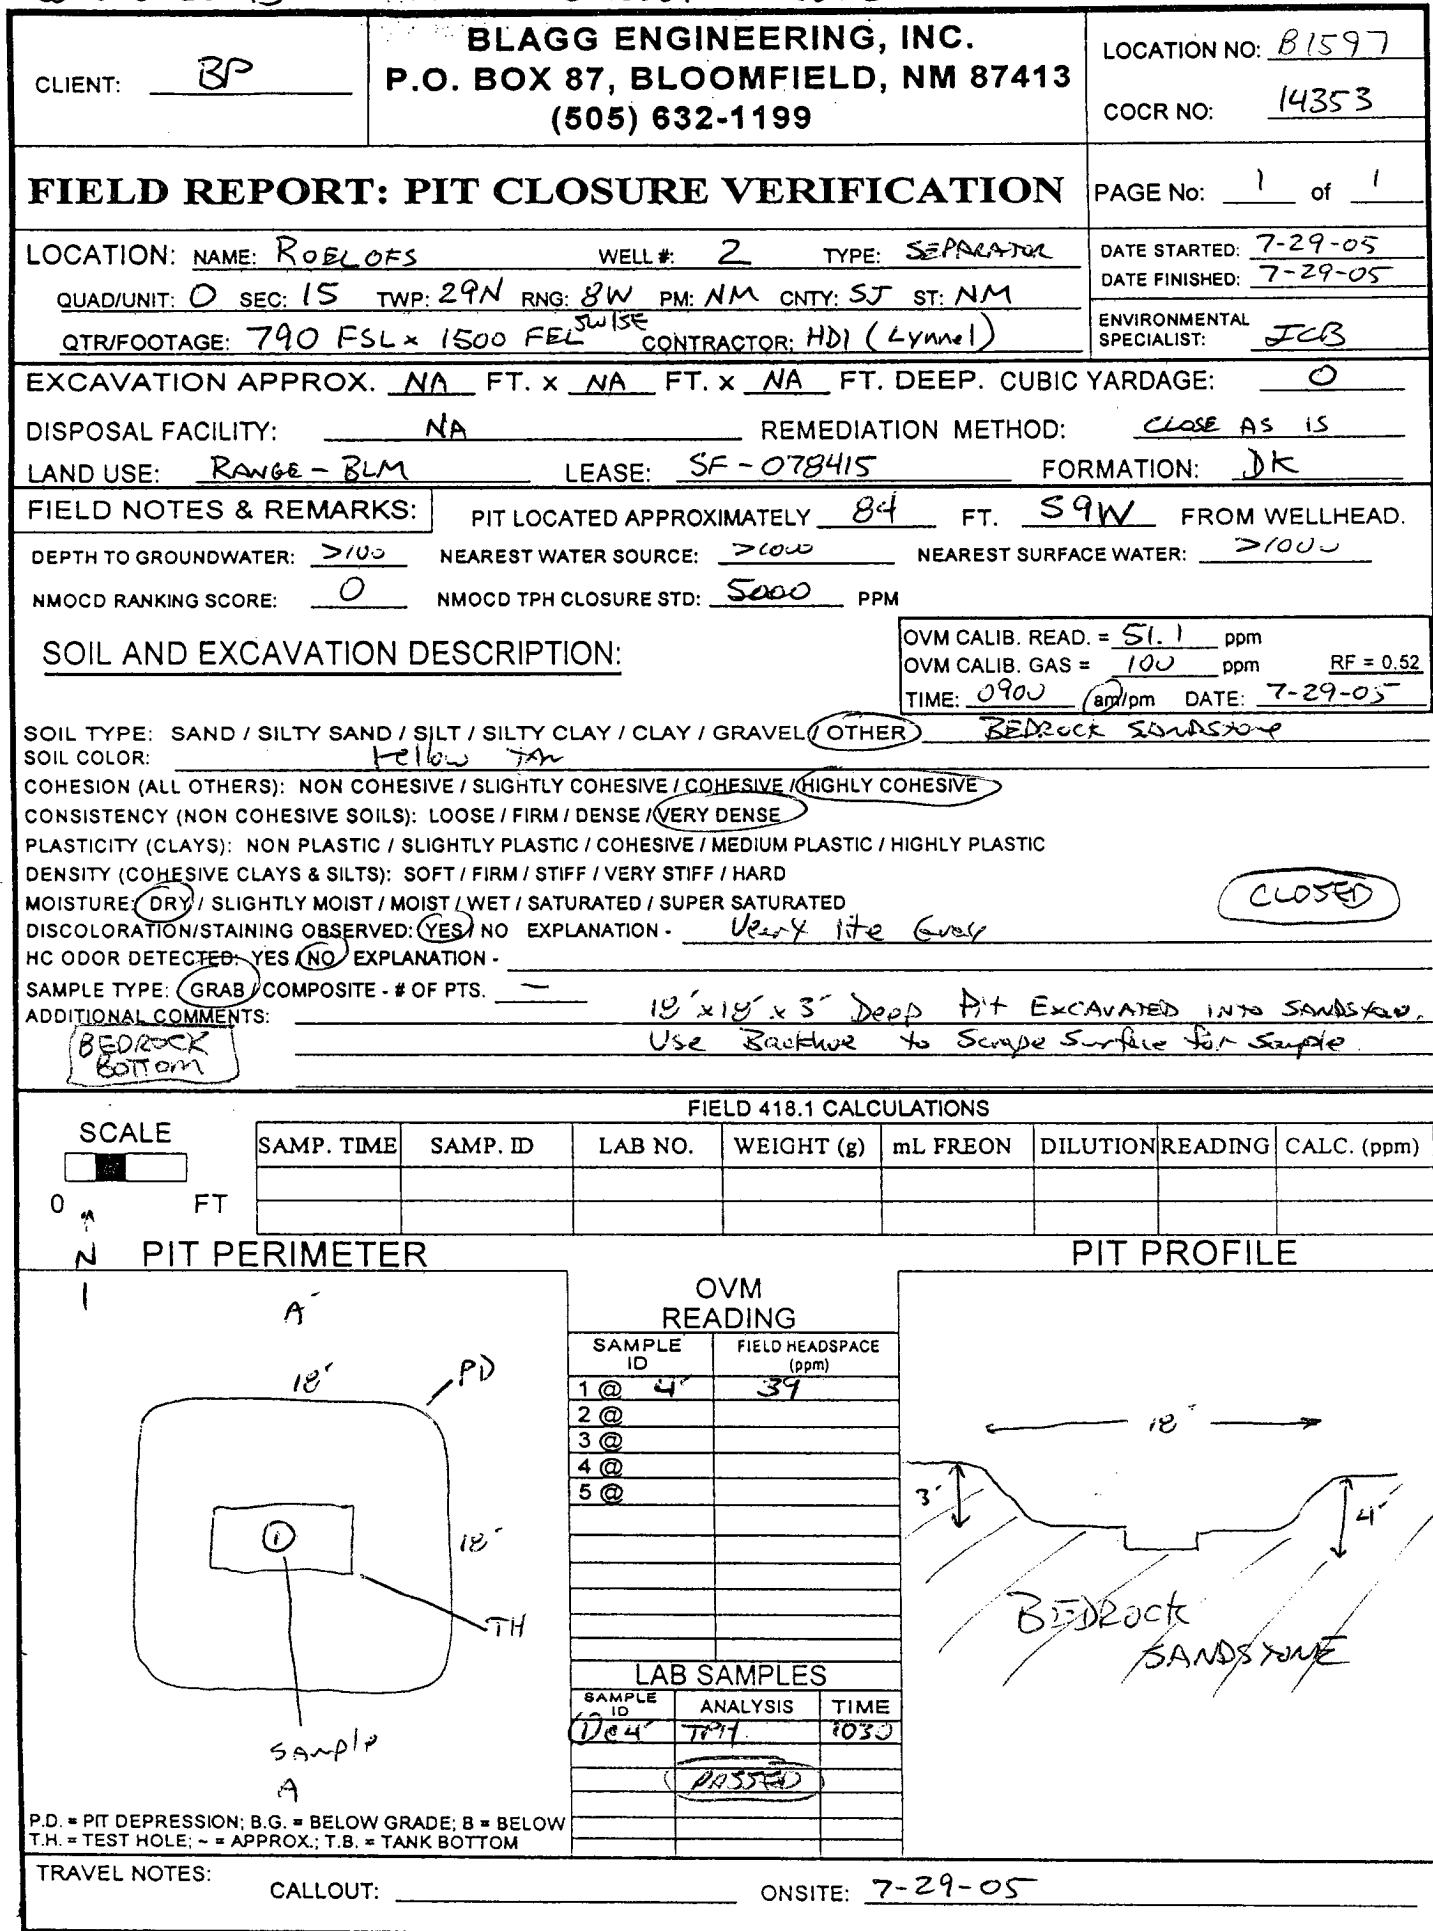 BLAGG ENGINEERING, INC.
P.O. BOX 87, BLOOMFIELD, NM 87413
(505) 632-1199
CLIENT: BP
LOCATION NO: B1597
COCR NO: 14353
FIELD REPORT: PIT CLOSURE VERIFICATION
PAGE No: 1 of 1
LOCATION: NAME: ROELOFS WELL #: 2 TYPE: SEPARATOR
DATE STARTED: 7-29-05
DATE FINISHED: 7-29-05
QUAD/UNIT: O SEC: 15 TWP: 29N RNG: 8W PM: NM CNTY: SJ ST: NM
QTR/FOOTAGE: 790 FSL x 1500 FEL SW/SE CONTRACTOR: HDI (Lynnel)
ENVIRONMENTAL SPECIALIST: JCB
EXCAVATION APPROX. NA FT. x NA FT. x NA FT. DEEP. CUBIC YARDAGE: 0
DISPOSAL FACILITY: NA REMEDIATION METHOD: CLOSE AS IS
LAND USE: RANGE - BLM LEASE: SF - 078415 FORMATION: DK
FIELD NOTES & REMARKS: PIT LOCATED APPROXIMATELY 84 FT. S9W FROM WELLHEAD.
DEPTH TO GROUNDWATER: >100 NEAREST WATER SOURCE: >1000 NEAREST SURFACE WATER: >1000
NMOCD RANKING SCORE: 0 NMOCD TPH CLOSURE STD: 5000 PPM
SOIL AND EXCAVATION DESCRIPTION:
OVM CALIB. READ. = 51.1 ppm
OVM CALIB. GAS = 100 ppm RF = 0.52
TIME: 0900 am/pm DATE: 7-29-05
SOIL TYPE: SAND / SILTY SAND / SILT / SILTY CLAY / CLAY / GRAVEL / OTHER BEDROCK SANDSTONE
SOIL COLOR: Yellow TAN
COHESION (ALL OTHERS): NON COHESIVE / SLIGHTLY COHESIVE / COHESIVE / HIGHLY COHESIVE
CONSISTENCY (NON COHESIVE SOILS): LOOSE / FIRM / DENSE / VERY DENSE
PLASTICITY (CLAYS): NON PLASTIC / SLIGHTLY PLASTIC / COHESIVE / MEDIUM PLASTIC / HIGHLY PLASTIC
DENSITY (COHESIVE CLAYS & SILTS): SOFT / FIRM / STIFF / VERY STIFF / HARD
MOISTURE: DRY / SLIGHTLY MOIST / MOIST / WET / SATURATED / SUPER SATURATED
CLOSED
DISCOLORATION/STAINING OBSERVED: YES / NO EXPLANATION - Very lite Gray
HC ODOR DETECTED: YES / NO EXPLANATION -
SAMPLE TYPE: GRAB / COMPOSITE - # OF PTS. —
ADDITIONAL COMMENTS: 18' x 18' x 3' Deep Pit EXCAVATED INTO SANDSTONE.
Use Backhoe to Scrape Surface for Sample
BEDROCK
BOTTOM
FIELD 418.1 CALCULATIONS
SCALE
SAMP. TIME SAMP. ID LAB NO. WEIGHT (g) mL FREON DILUTION READING CALC. (ppm)
0 FT
N
PIT PERIMETER
PIT PROFILE
A'
18'
PD
18'
1
TH
Sample
A
OVM
READING
SAMPLE ID FIELD HEADSPACE (ppm)
1 @ 4' 39
2 @
3 @
4 @
5 @
LAB SAMPLES
SAMPLE ID ANALYSIS TIME
1 @ 4' TPH 1030
PASSED
18'
3'
4'
BEDROCK
SANDSTONE
P.D. = PIT DEPRESSION; B.G. = BELOW GRADE; B = BELOW
T.H. = TEST HOLE; ~ = APPROX.; T.B. = TANK BOTTOM
TRAVEL NOTES:
CALLOUT: ONSITE: 7-29-05